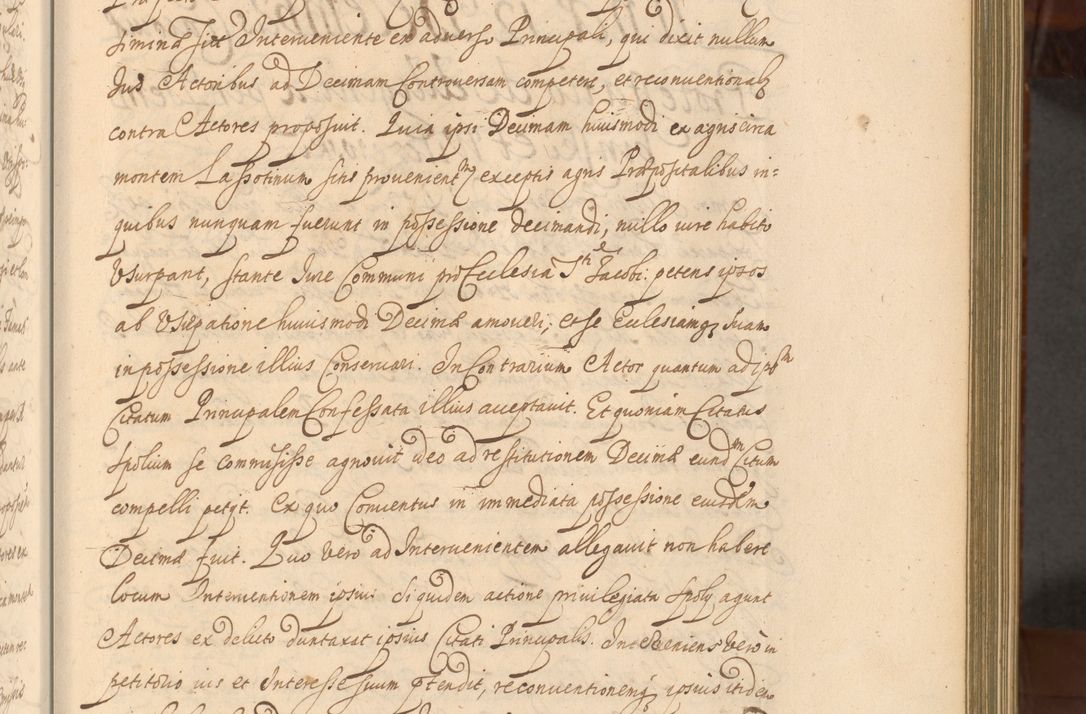 simind fit Interueniente ex aduerso Principali, qui dixit nullum
Jus Actoribus ad Decimam Controuersam competere, et reconuentionalẽ
contra Actores proposuit. Quia ipsi Decimam huiusmodi ex agris circa
montem Lassotinum sitis prouenientm exceptis agris Præpositalibus in=
quibus nunquam fuerunt in possessione decimandi, nullo iure habito
Vsurpant, stante Jure Communi pro Ecclesia Sti Jacobi: petens ipsos
ab Vsurpatione huiusmodi Decimæ amoueri, et se Ecclesiamq suam
in possessione illius Conseruari. In Contrarium Actor quantum ad ipsm
Citatum Principalem Confessata illius acceptauit. Et quoniam Citatus
spolium se commisisse agnouit ideo ad restitutionem Decimæ eundm Citum
compelli petyt. Ex quo Conuentus in immediata possessione eiusdem
Decimæ fuit. Quo vero ad Interuenientem allegauit non habere
locum Interuentionem ipsius Siquidem actione priuilegiata spoly agunt
Actores ex delicto duntaxat ipsius Citati Principalis. Interueniens Vero in
petitorio ius et Interesse suum prtendit, reconuentionemq ipsius itidem